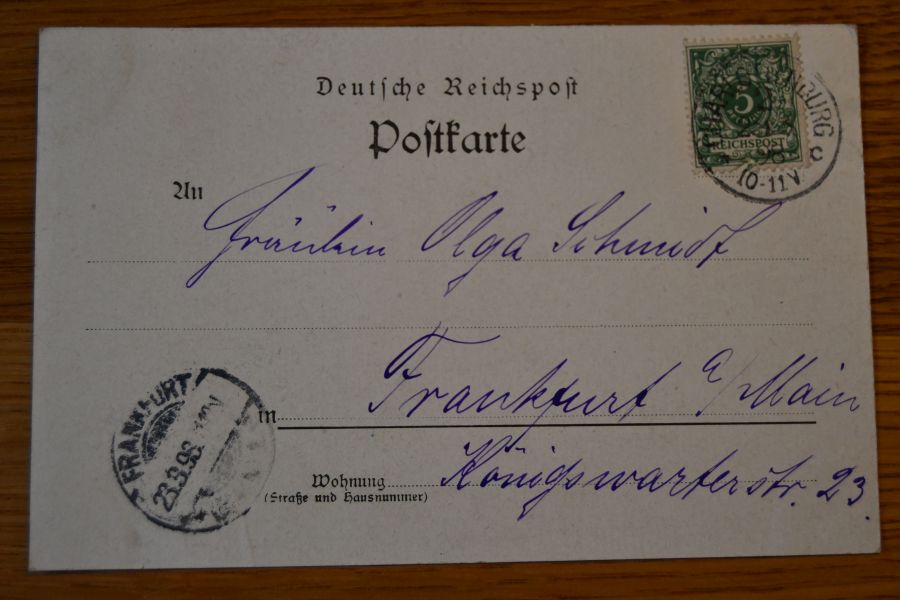 Deutsche Reichspost
Postkarte
5
REICHSPOST
10-11V
C
An
Fräulein Olga Schmidt
in Frankfurt a/Main
FRANKFURT
23.9.98
Wohnung Königswarterstr. 23.
(Straße und Hausnummer)